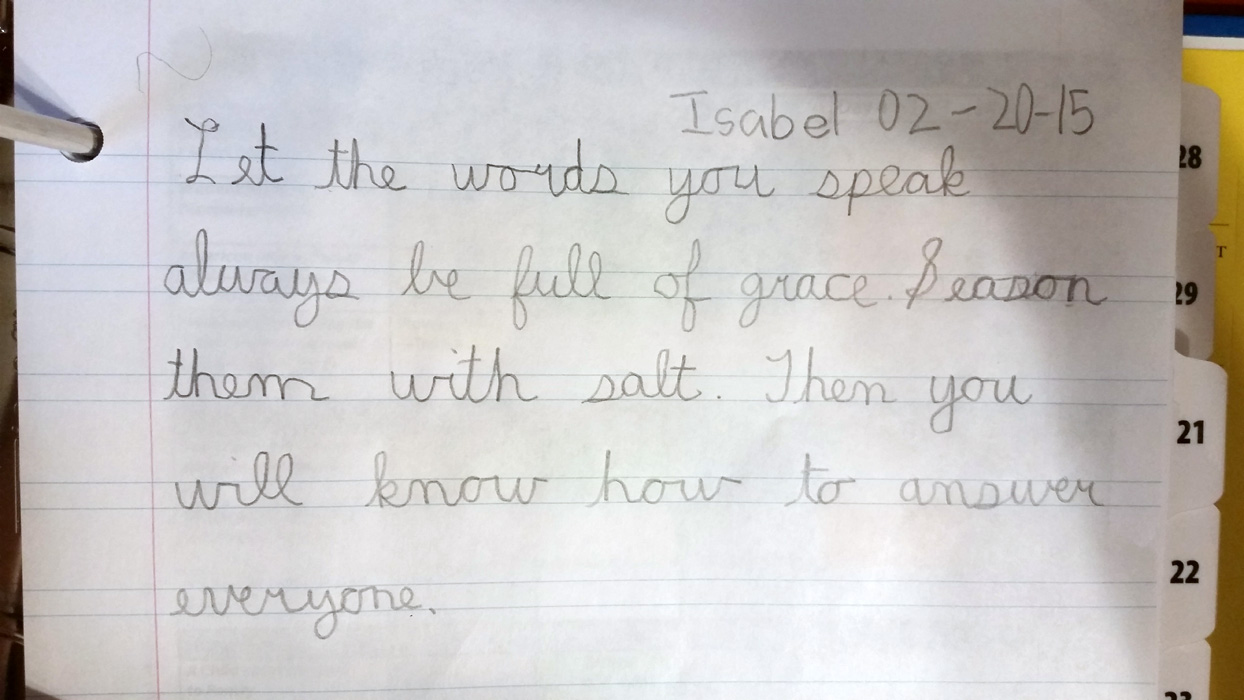 Isabel 02-20-15
Let the words you speak
always be full of grace. Season
them with salt. Then you
will know how to answer
everyone.
28
T
29
21
22
23